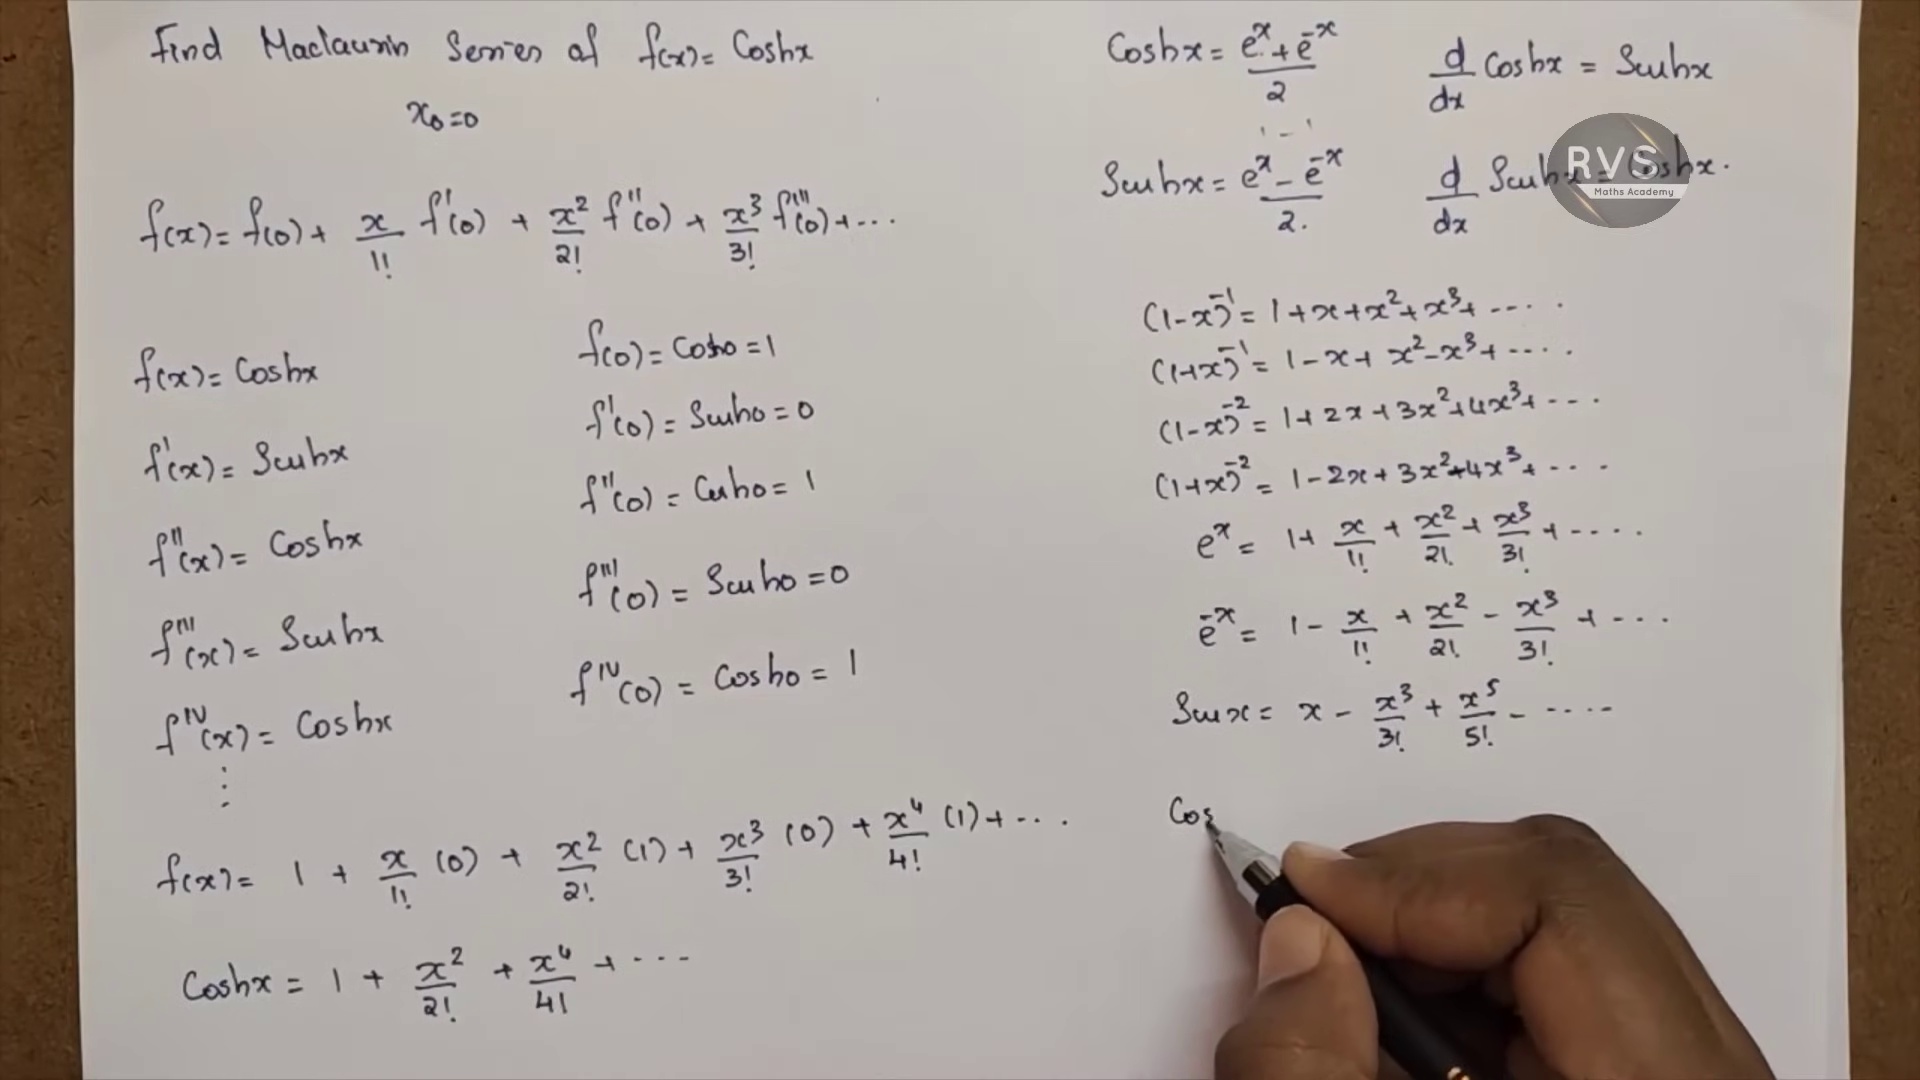 Find Maclaurin Series of f(x) = Coshx
x₀=0
f(x) = f(0) + x/1! f'(0) + x²/2! f''(0) + x³/3! f'''(0) + ...
f(x) = Coshx
f(0) = Cosh0 = 1
f'(x) = Sinhx
f'(0) = Sinh0 = 0
f''(x) = Coshx
f''(0) = Cosh0 = 1
f'''(x) = Sinhx
f'''(0) = Sinh0 = 0
f^IV(x) = Coshx
f^IV(0) = Cosh0 = 1
⋮
f(x) = 1 + x/1! (0) + x²/2! (1) + x³/3! (0) + x⁴/4! (1) + ...
Coshx = 1 + x²/2! + x⁴/4! + ...
Coshx = (e^x + e^-x)/2
d/dx Coshx = Sinhx
Sinhx = (e^x - e^-x)/2.
d/dx Sinhx = Coshx.
RVS
Maths Academy
(1-x)^-1 = 1+x+x²+x³+ ....
(1+x)^-1 = 1-x+x²-x³+ ....
(1-x)^-2 = 1+2x+3x²+4x³+ ...
(1+x)^-2 = 1-2x+3x²-4x³+ ....
e^x = 1 + x/1! + x²/2! + x³/3! + ....
e^-x = 1 - x/1! + x²/2! - x³/3! + ....
Sinx = x - x³/3! + x⁵/5! - .....
Cos